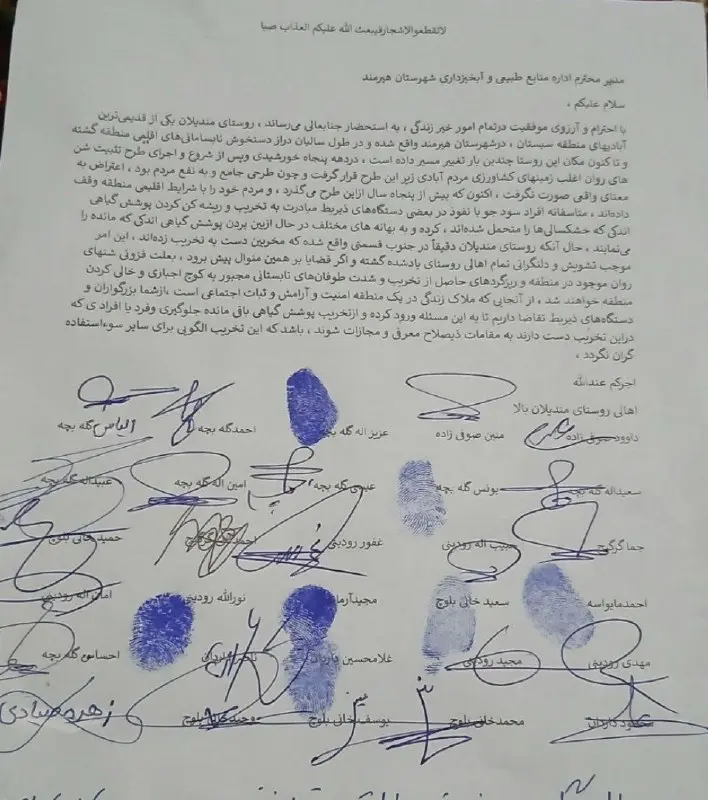 لاتقطعوالاشجارفیبعث الله علیکم العذاب صبا
مدیر محترم اداره منابع طبیعی و آبخیزداری شهرستان هیرمند
سلام علیکم ،
با احترام و آرزوی موفقیت درتمام امور خیر زندگی ، به استحضار جنابعالی می‌رساند ، روستای مندیلان یکی از قدیمی‌ترین
آبادیهای منطقه سیستان ، درشهرستان هیرمند واقع شده و در طول سالیان دراز دستخوش نابسامانی‌های اقلیمی منطقه گشته
و تا کنون مکان این روستا چندین بار تغییر مسیر داده است ، دردهه پنجاه خورشیدی وپس از شروع و اجرای طرح تثبیت شن
های روان اغلب زمینهای کشاورزی مردم آبادی زیر این طرح قرار گرفت و چون طرحی جامع و به نفع مردم بود ، اعتراض به
معنای واقی صورت نگرفت ، اکنون که بیش از پنجاه سال ازاین طرح می‌گذرد ، و مردم خود را با شرایط اقلیمی منطقه وفق
داده‌اند ، متاسفانه افراد سود جو با نفوذ در بعضی دستگاه‌های ذیربط مبادرت به تخریب و ریشه کن کردن پوشش گیاهی
اندکی که خشکسالی‌ها را متحمل شده‌اند ، کرده و به بهانه های مختلف در حال ازبین بردن پوشش گیاهی اندکی که مانده را
می‌نمایند ، حال آنکه روستای مندیلان دقیقاً در جنوب قسمتی واقع شده که مخربین دست به تخریب زده‌اند ، این امر
موجب تشویش و دلنگرانی تمام اهالی روستای یادشده گشته و اگر قضایا بر همین منوال پیش برود ، بعلت فزونی شنهای
روان موجود در منطقه و ریزگردهای حاصل از تخریب و شدت طوفان‌های تابستانی مجبور به کوچ اجباری و خالی کردن
منطقه خواهند شد ، از آنجایی که ملاک زندگی در یک منطقه امنیت و آرامش و ثبات اجتماعی است ،ازشما بزرگواران و
دستگاه‌های ذیربط تقاضا داریم تا به این مسئله ورود کرده و ازتخریب پوشش گیاهی باقی مانده جلوگیری وفرد یا افراد ی که
دراین تخریب دست دارند به مقامات ذیصلاح معرفی و مجازات شوند ، باشد که این تخریب الگویی برای سایر سوءاستفاده
گران نگردد ،
اجرکم عندالله
اهالی روستای مندیلان بالا
داوود صوفی زاده متین صوفی زاده عزیز اله گله بچه احمدگله بچه الیاس گله بچه
سعیداله گله بچه یونس گله بچه عیسی گله بچه امین اله گله بچه عبیداله گله بچه
جما گرگیج حبیب اله رودینی غفور رودینی احمد حمید خانی بلوچ
احمدمایواسه سعید خانی بلوچ مجیدآرما نورالله رودینی امان اله رودینی
مهدی رودینی مجید رودینی غلامحسین احساس گله بچه
محمود کاردان محمدخانی بلوچ یوسف خانی بلوچ وحید خانی بلوچ زهره صیادی